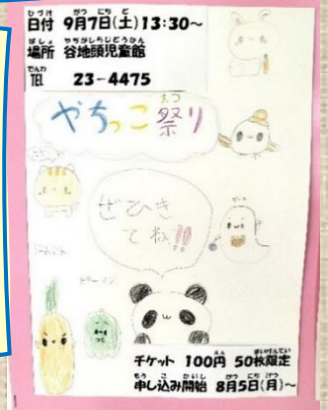 日付 9月7日(土)13:30～
場所 谷地頭児童館
TEL 23-4475
やちっこ祭り
ぜひき
てね!!
チケット 100円 50枚限定
申し込み開始 8月5日(月)～